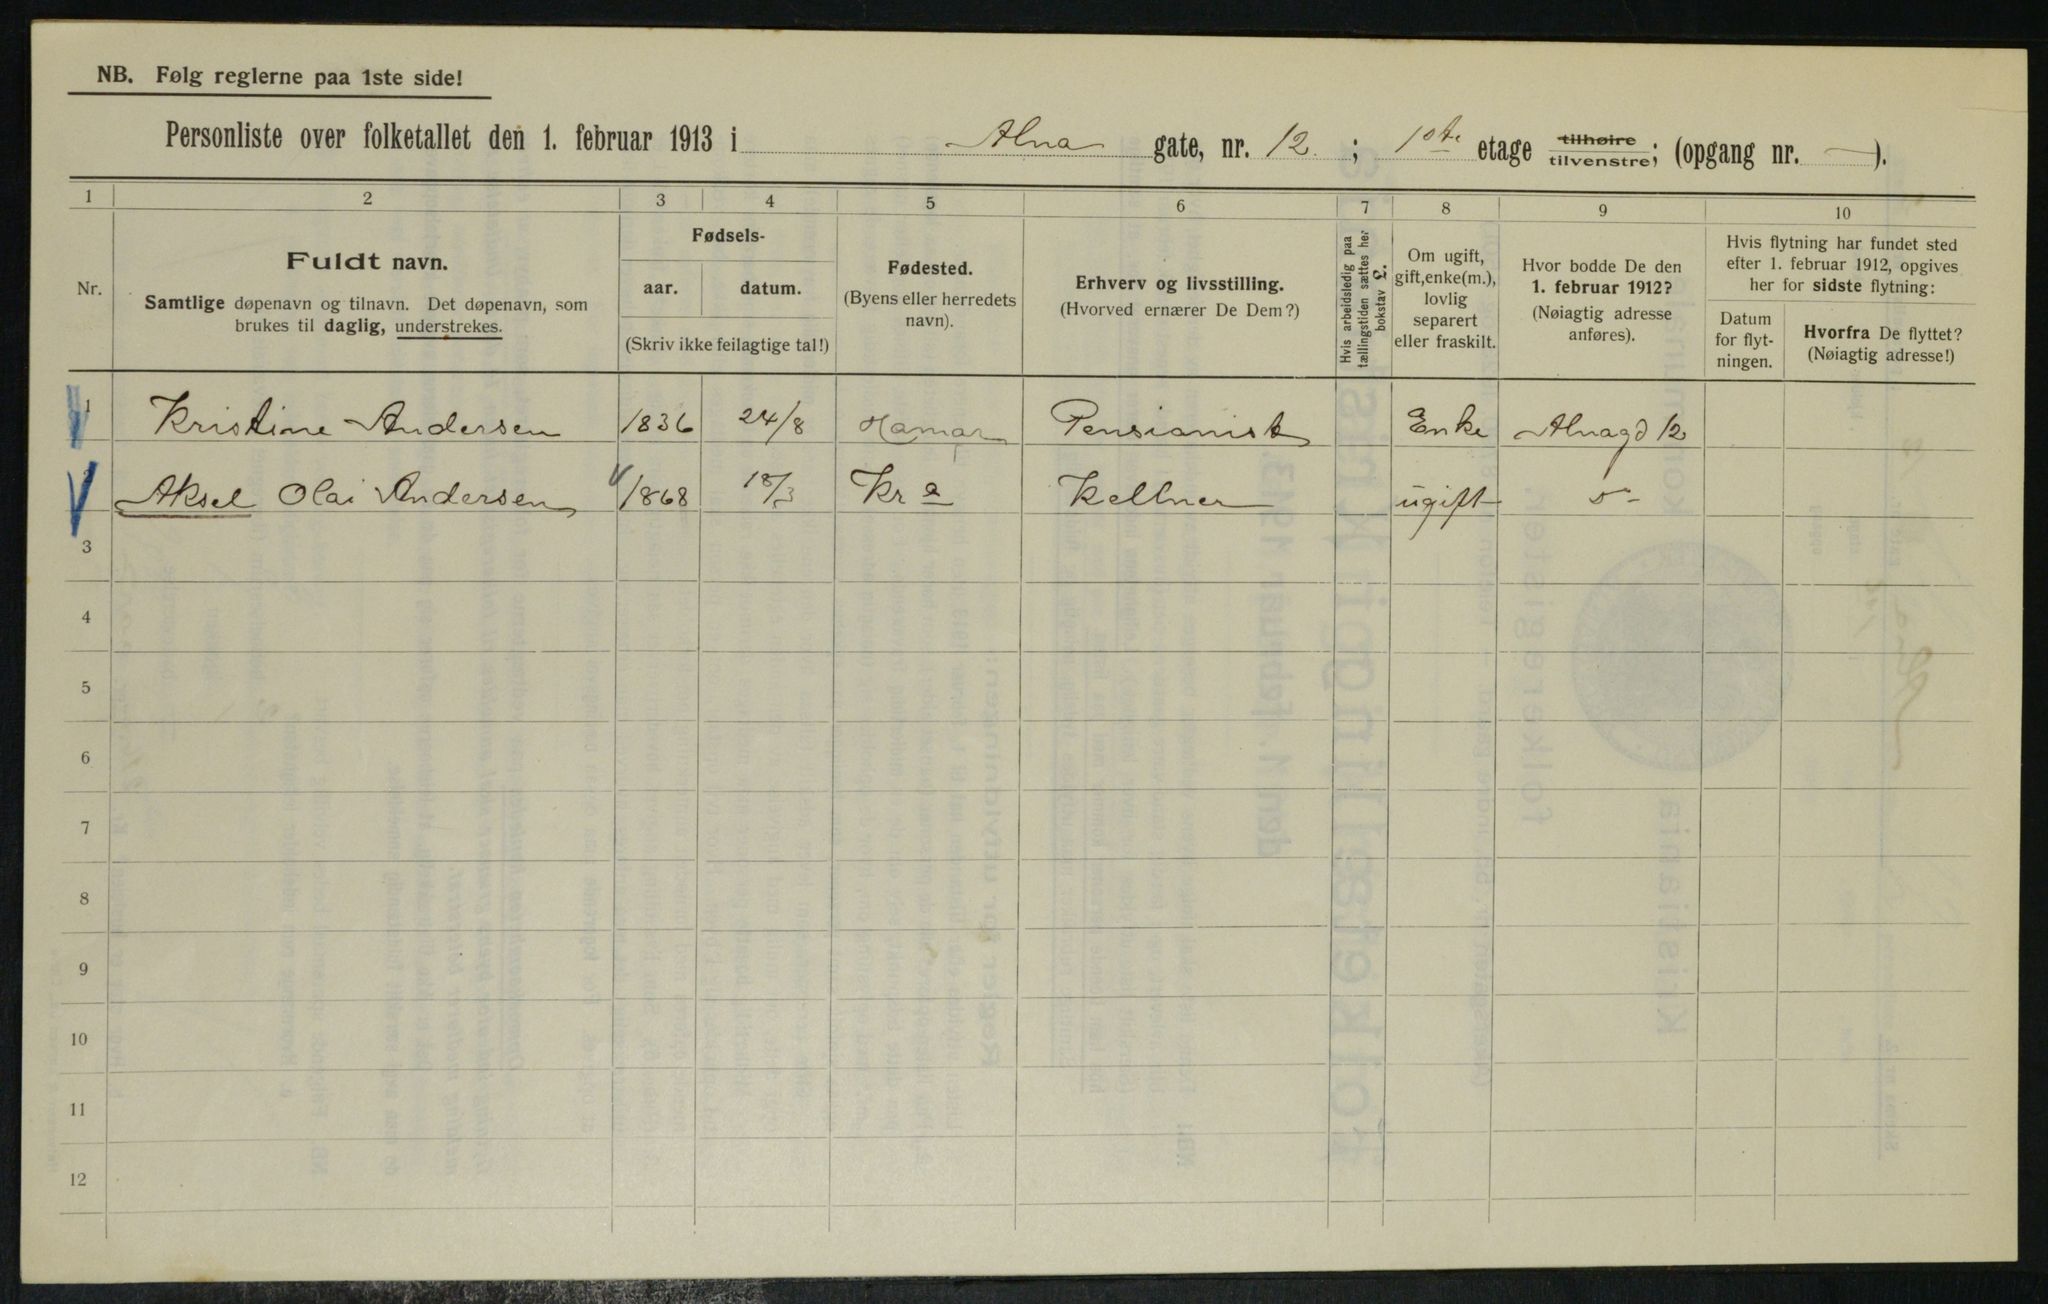 NB. Følg reglerne paa 1ste side!
Personliste over folketallet den 1. februar 1913 i Alna gate, nr. 12 ; 1ste etage tilhøire tilvenstre; (opgang nr. — ).
1 2 3 4 5 6 7 8 9 10
Nr.
Fuldt navn.
Samtlige døpenavn og tilnavn. Det døpenavn, som
brukes til daglig, understrekes.
Fødsels-
aar. datum.
(Skriv ikke feilagtige tal!)
Fødested.
(Byens eller herredets
navn).
Erhverv og livsstilling.
(Hvorved ernærer De Dem?)
Hvis arbeidsledig paa
tællingstiden sættes her
bokstav L.
Om ugift,
gift, enke(m.),
lovlig
separert
eller fraskilt.
Hvor bodde De den
1. februar 1912?
(Nøiagtig adresse
anføres).
Hvis flytning har fundet sted
efter 1. februar 1912, opgives
her for sidste flytning:
Datum
for flyt-
ningen.
Hvorfra De flyttet?
(Nøiagtig adresse!)
1 Kristine Andersen 1836 24/8 Hamar Pensianist Enke Alnagd 12
2 Aksel Olai Andersen 1868 18/3 Kr a Kellner ugift
3
4
5
6
7
8
9
10
11
12